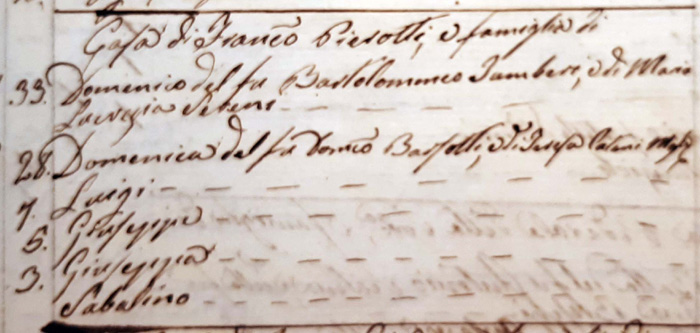 Casa di Franco Pierotti, e famiglia di
33. Domenico del fu Bartolommeo Tamberi, e di Maria
Lucrezia
28. Domenica del fu Domco e di Teresa
7. Luigi
5. Giuseppe
3. Giuseppa
Sabatino